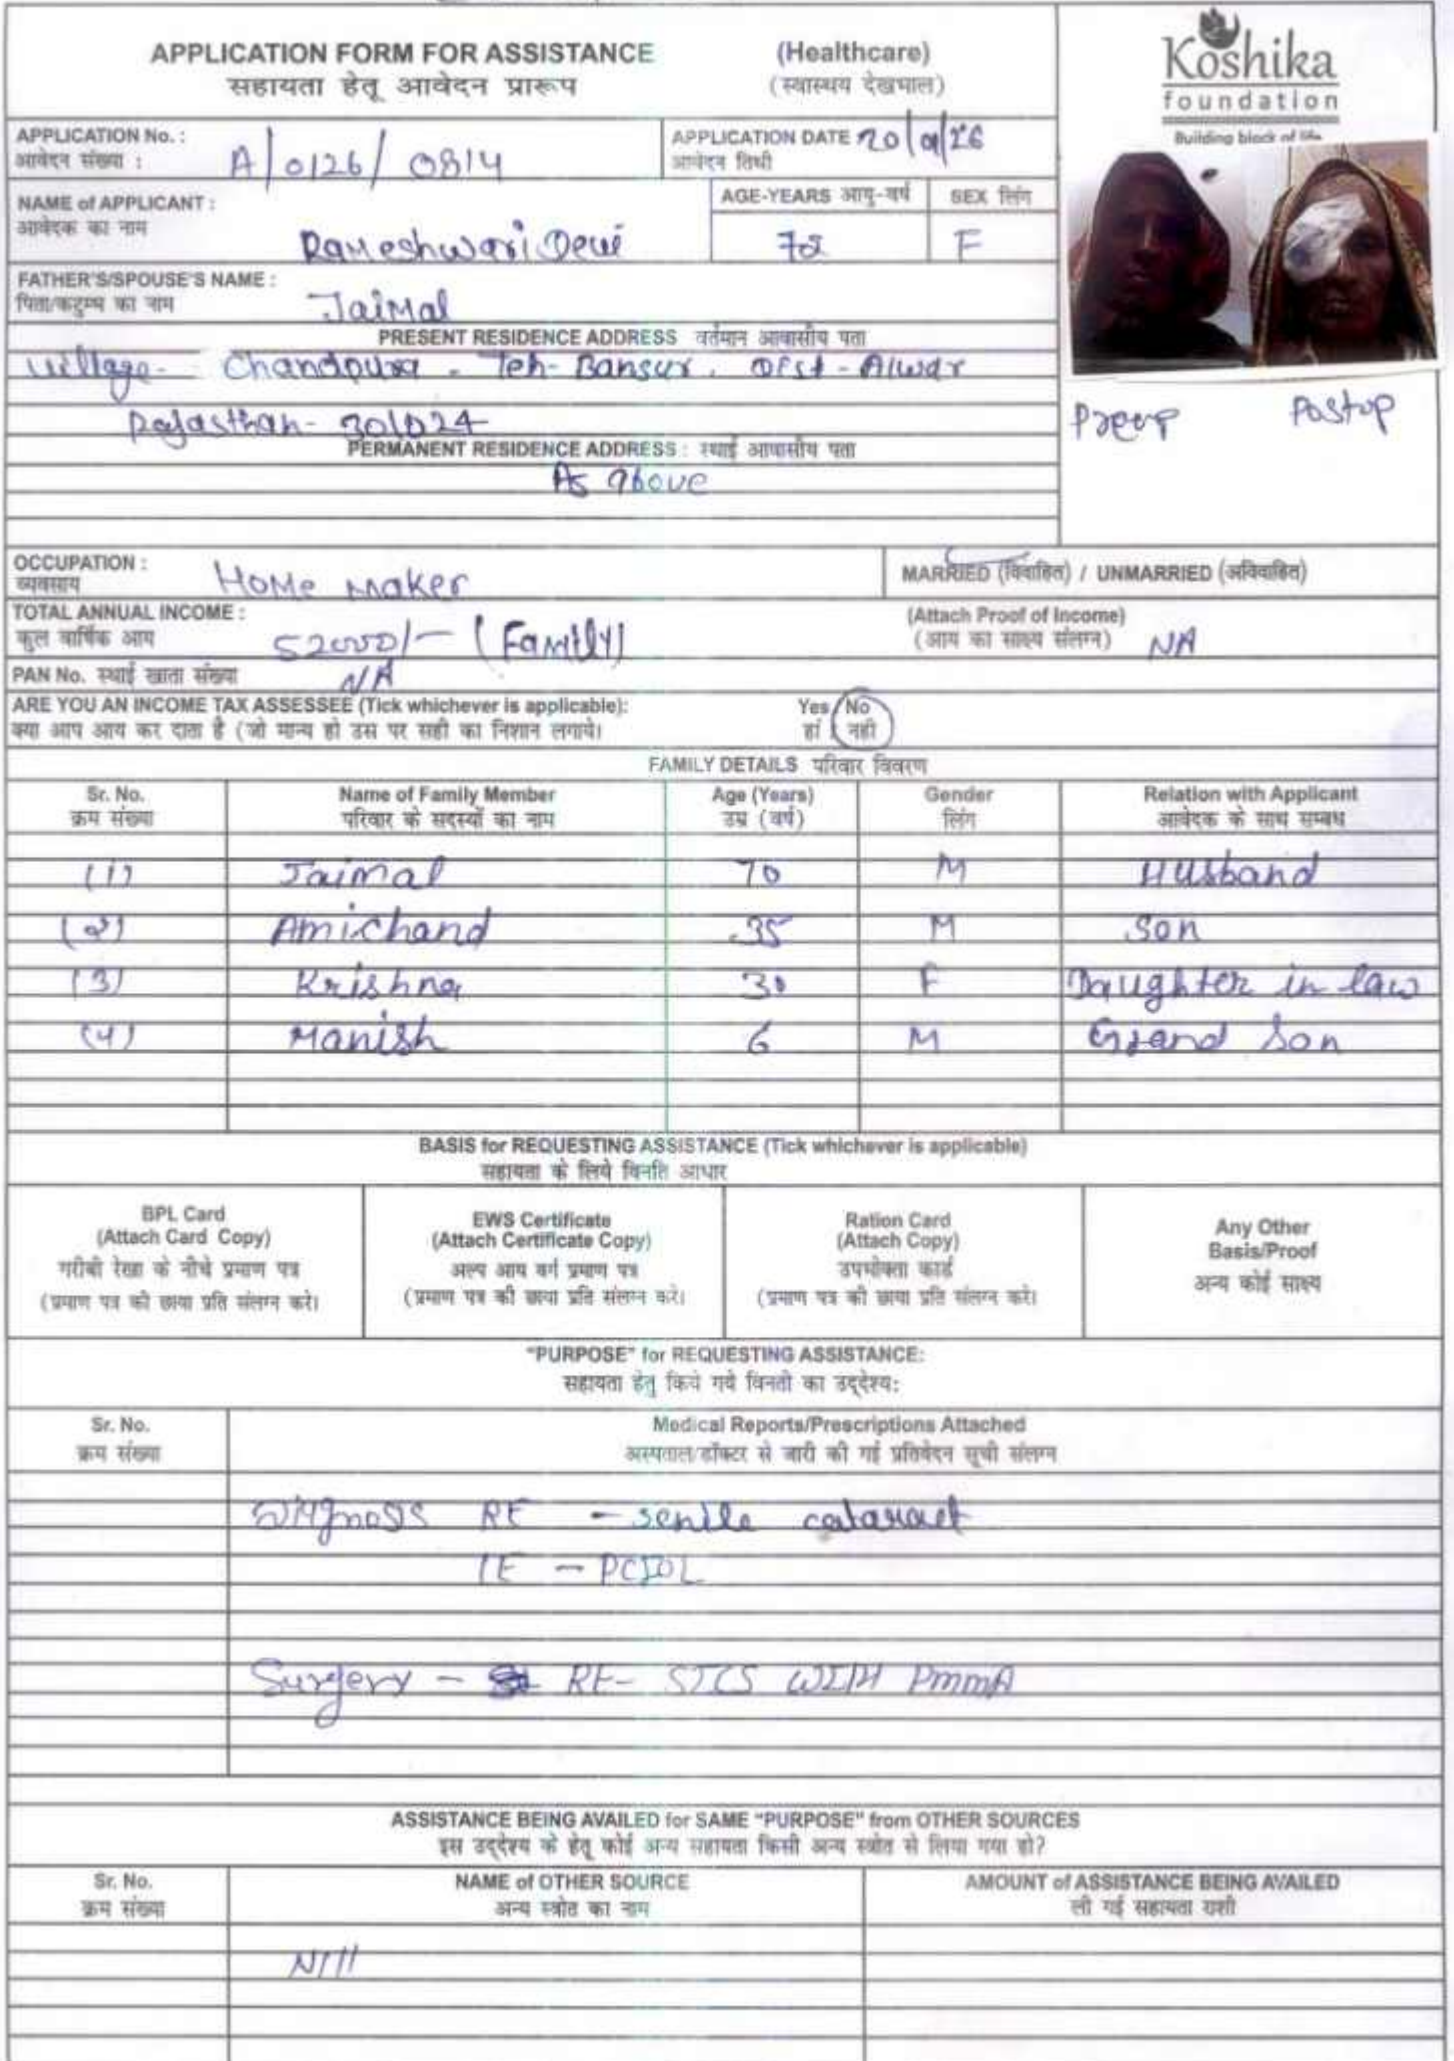 APPLICATION FORM FOR ASSISTANCE (Healthcare)
सहायता हेतू आवेदन प्रारूप (स्वास्थय देखभाल)
Koshika
foundation
Building block of life
APPLICATION No. : A/0126/0814 APPLICATION DATE
आवेदन संख्या : आवेदन तिथी
NAME of APPLICANT : AGE-YEARS आयु-वर्ष SEX लिंग
आवेदक का नाम Rameshwari Devi 72 F
FATHER'S/SPOUSE'S NAME :
पिता/कटुम्ब का नाम Jaimal
PRESENT RESIDENCE ADDRESS वर्तमान आवासीय पता
Village- Chandpura - Teh- Bansur. Dist - Alwar
Rajasthan- 301024
Preop Postop
PERMANENT RESIDENCE ADDRESS : स्थाई आवासीय पता
As above
OCCUPATION : Home maker MARRIED (विवाहित) / UNMARRIED (अविवाहित)
व्यवसाय
TOTAL ANNUAL INCOME : (Attach Proof of Income)
कुल वार्षिक आय 52000/- (Family) (आय का साक्ष्य संलग्न) NA
PAN No. स्थाई खाता संख्या NA
ARE YOU AN INCOME TAX ASSESSEE (Tick whichever is applicable): Yes/No
क्या आप आय कर दाता है (जो मान्य हो उस पर सही का निशान लगाये। हां नही
FAMILY DETAILS परिवार विवरण
Sr. No. Name of Family Member Age (Years) Gender Relation with Applicant
क्रम संख्या परिवार के सदस्यों का नाम उम्र (वर्ष) लिंग आवेदक के साथ सम्बध
(1) Jaimal 70 M Husband
(2) Amichand 35 M Son
(3) Krishna 30 F Daughter in law
(4) Manish 6 M Grand Son
BASIS for REQUESTING ASSISTANCE (Tick whichever is applicable)
सहायता के लिये विनति आधार
BPL Card
(Attach Card Copy)
गरीबी रेखा के नीचे प्रमाण पत्र
(प्रमाण पत्र की छाया प्रति संलग्न करे।
EWS Certificate
(Attach Certificate Copy)
अल्प आय वर्ग प्रमाण पत्र
(प्रमाण पत्र की छाया प्रति संलग्न करे।
Ration Card
(Attach Copy)
उपभोक्ता कार्ड
(प्रमाण पत्र की छाया प्रति संलग्न करे।
Any Other
Basis/Proof
अन्य कोई साक्ष्य
"PURPOSE" for REQUESTING ASSISTANCE:
सहायता हेतु किये गये विनती का उद्देश्य:
Sr. No. Medical Reports/Prescriptions Attached
क्रम संख्या अस्पताल/डॉक्टर से जारी की गई प्रतिवेदन सूची संलग्न
Diagnosis RE - senile cataract
LE - PCIOL
Surgery - RE- SICS WITH PMMA
ASSISTANCE BEING AVAILED for SAME "PURPOSE" from OTHER SOURCES
इस उद्देश्य के हेतू कोई अन्य सहायता किसी अन्य स्त्रोत से लिया गया हो?
Sr. No. NAME of OTHER SOURCE AMOUNT of ASSISTANCE BEING AVAILED
क्रम संख्या अन्य स्त्रोत का नाम ली गई सहायता राशी
Nill